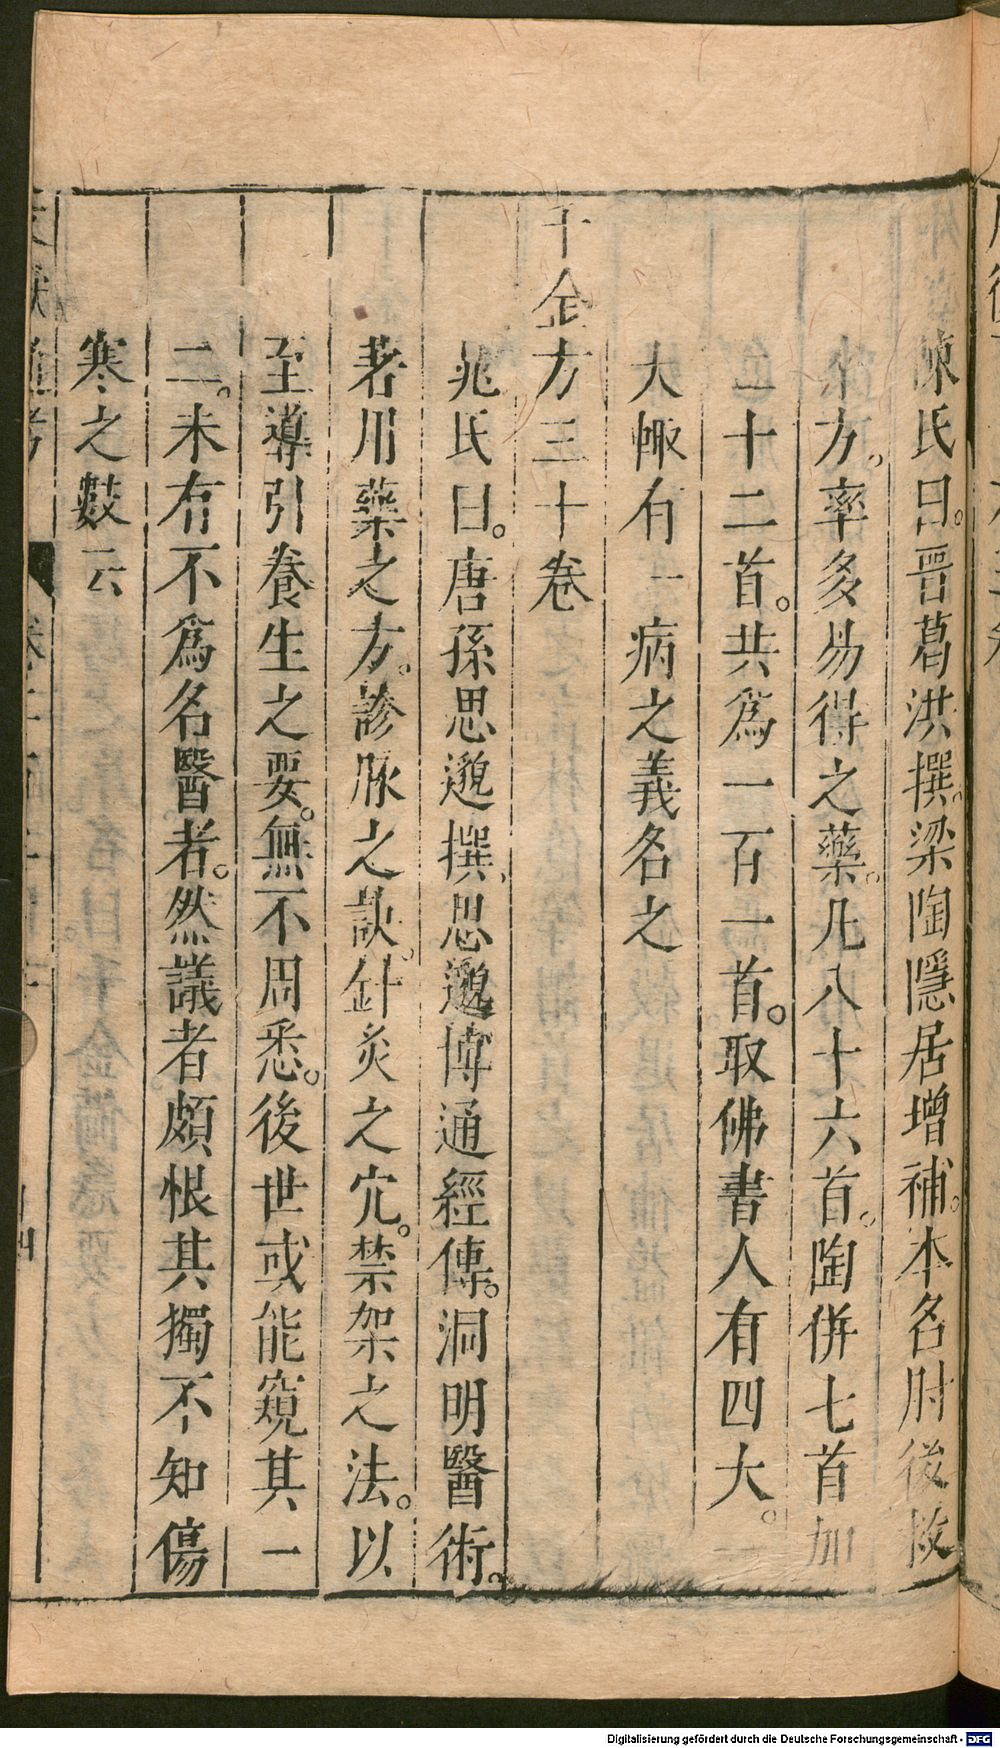 陳氏曰。晉葛洪撰。梁陶隱居增補。本名肘後救
卒方。率多易得之藥。凡八十六首。陶併七首加
二十二首。共爲一百一首。取佛書人有四大。一
大輙有一病之義名之
千金方三十卷
晁氏曰。唐孫思邈撰。思邈博通經傳。洞明醫術。
著用藥之方。診脉之訣。針炙之穴。禁架之法。以
至導引養生之要。無不周悉。後世或能窺其一
二。未有不爲名醫者。然議者頗恨其獨不知傷
寒之數云
Digitalisierung gefördert durch die Deutsche Forschungsgemeinschaft - DFG